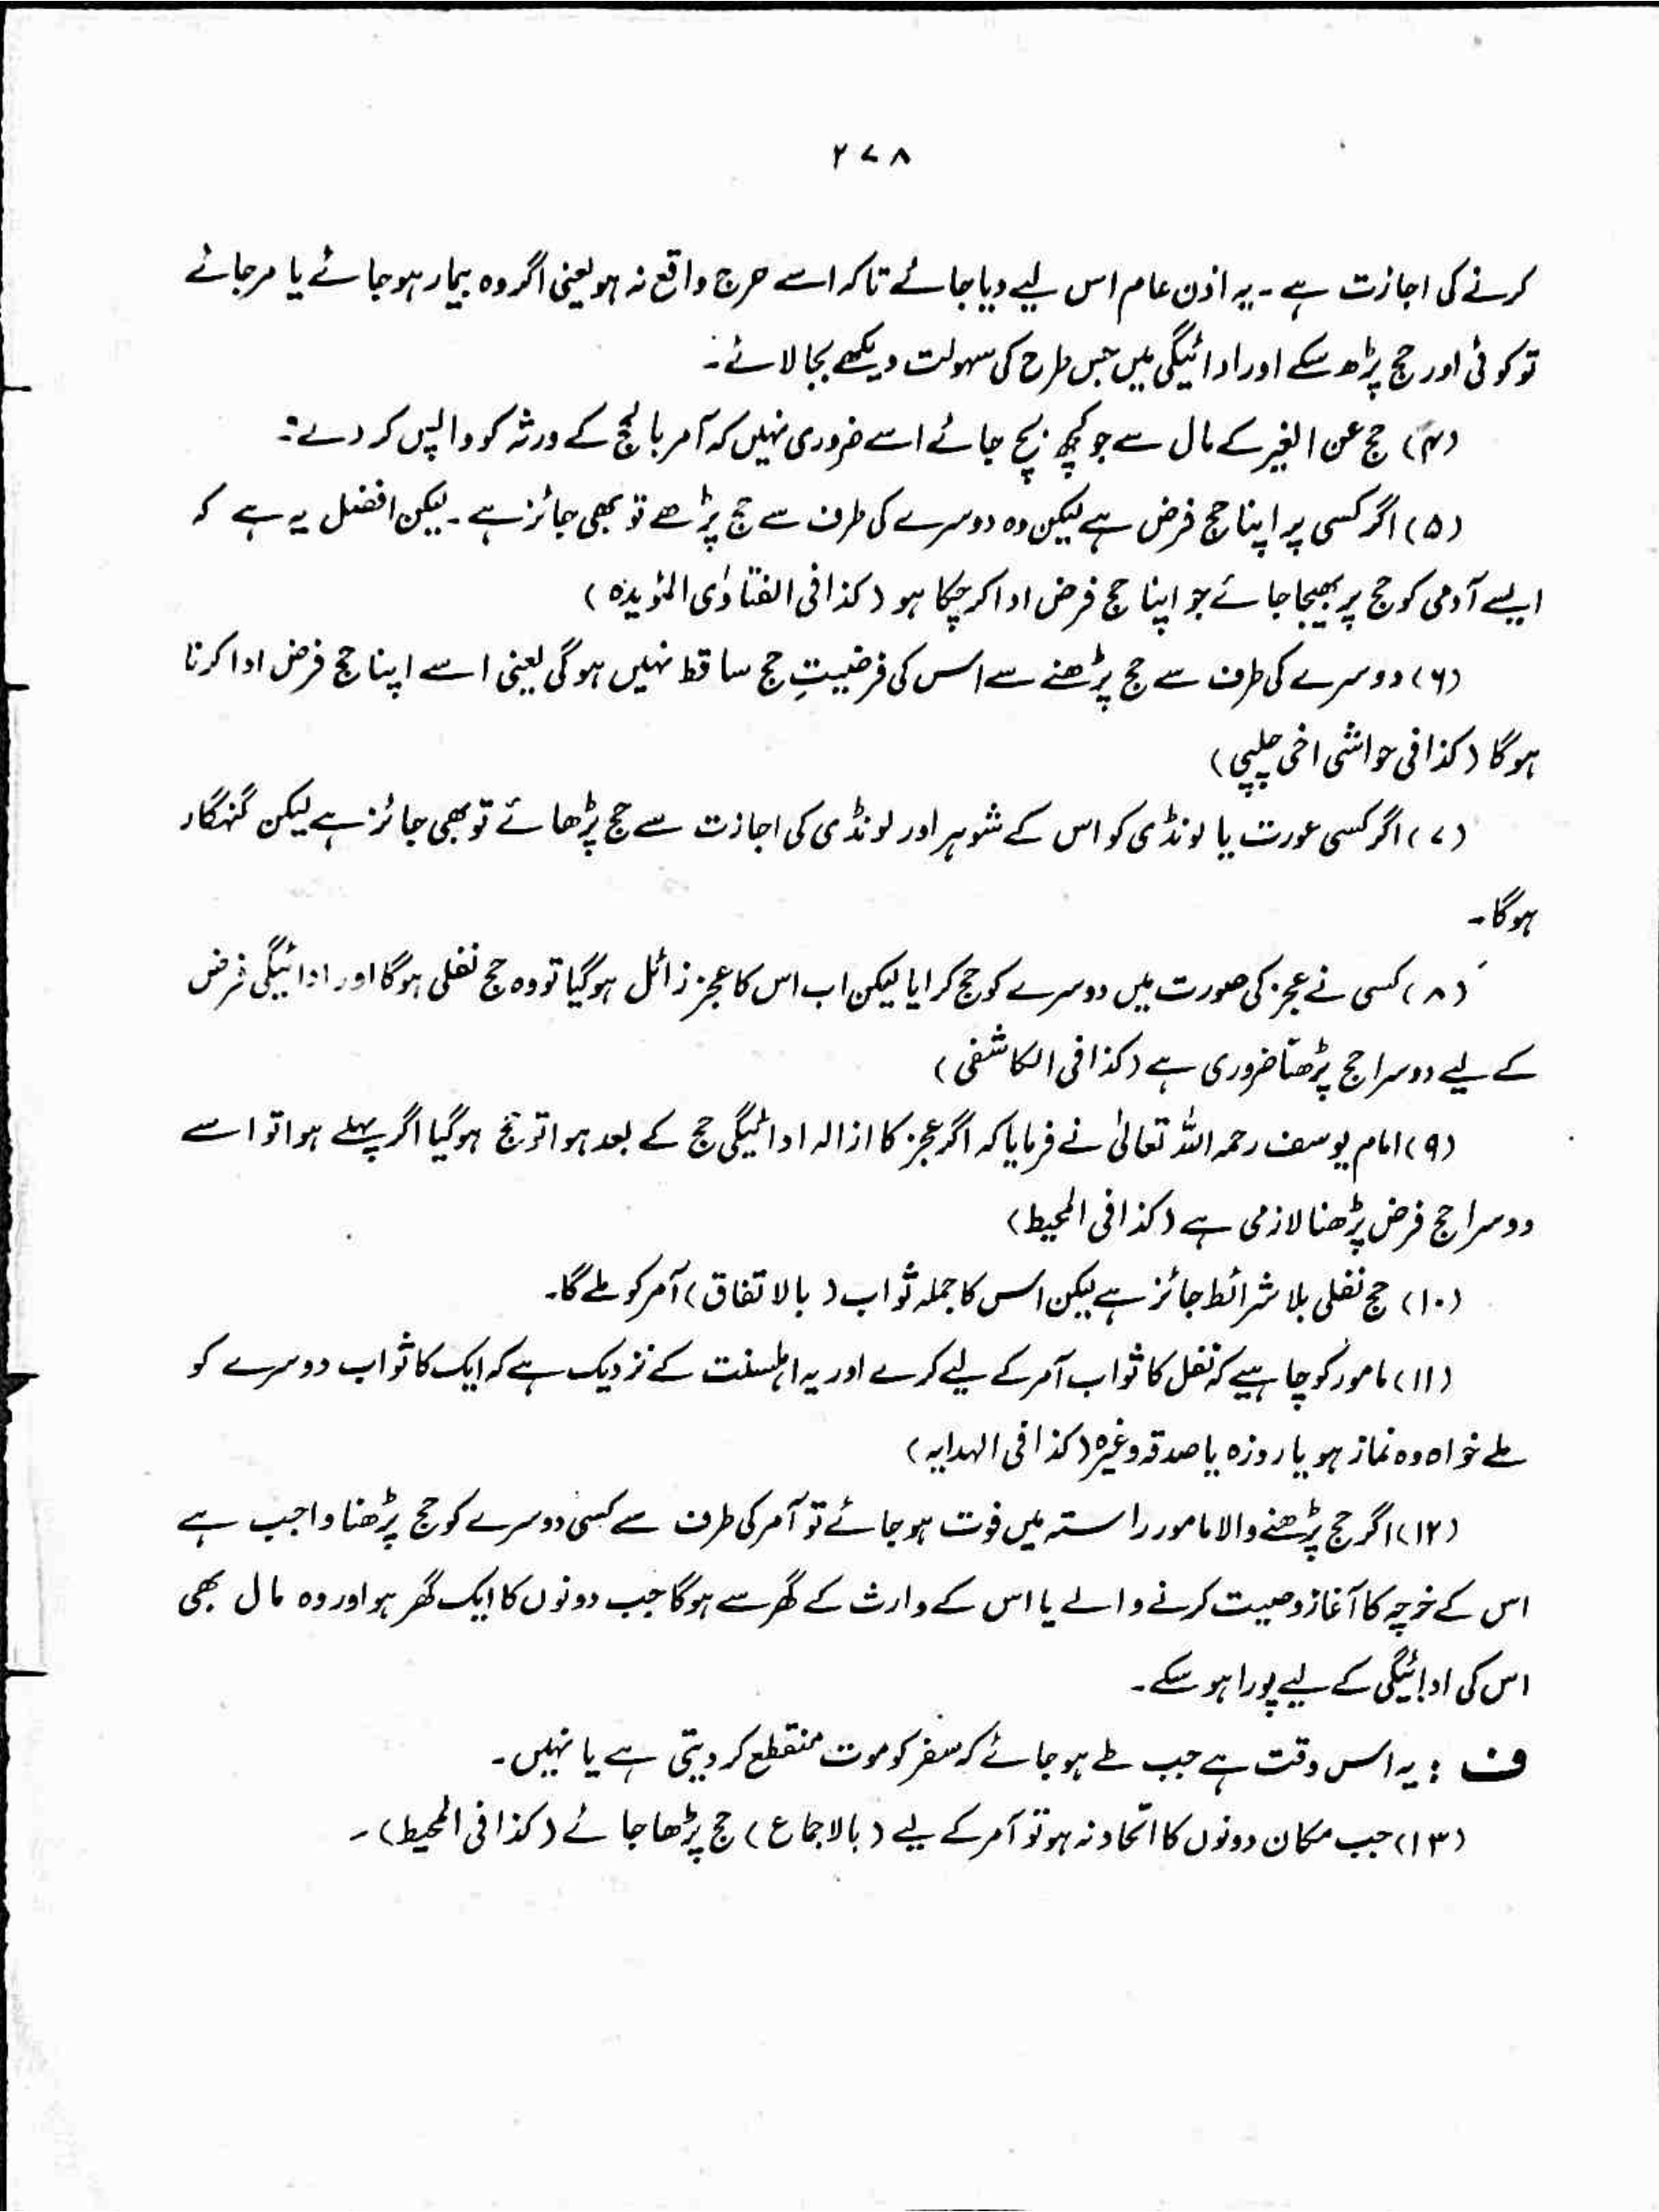 ۲۷۸
کرنے کی اجازت ہے ۔ یہ اذن عام اس لیے دیا جائے تاکہ اسے حرج واقع نہ ہو یعنی اگر وہ بیمار ہو جائے یا مر جائے
تو کوئی اور حج پڑھ سکے اور ادائیگی میں جس طرح کی سہولت دیکھے بجا لائے ۔
(۴) حج عن الغیر کے مال سے جو کچھ بچ جائے اسے ضروری نہیں کہ آمر بالحج کے ورثہ کو واپس کر دے :
(۵) اگر کسی پر اپنا حج فرض ہے لیکن وہ دوسرے کی طرف سے حج پڑھے تو بھی جائز ہے ۔ لیکن افضل یہ ہے کہ
ایسے آدمی کو حج پر بھیجا جائے جو اپنا حج فرض ادا کر چکا ہو (کذا فی الفتاوٰی المؤیدہ)
(۶) دوسرے کی طرف سے حج پڑھنے سے اس کی فرضیتِ حج ساقط نہیں ہو گی یعنی اسے اپنا حج فرض ادا کرنا
ہو گا (کذا فی حواشی اخی چلپی)
(۷) اگر کسی عورت یا لونڈی کو اس کے شوہر اور لونڈی کی اجازت سے حج پڑھائے تو بھی جائز ہے لیکن گنہگار
ہو گا ۔
(۸) کسی نے عجز کی صورت میں دوسرے کو حج کرایا لیکن اب اس کا عجز زائل ہو گیا تو وہ حج نفلی ہو گا اور ادائیگی فرض
کے لیے دوسرا حج پڑھنا ضروری ہے (کذا فی الکاشفی)
(۹) امام یوسف رحمہ اللہ تعالیٰ نے فرمایا کہ اگر عجز کا ازالہ ادائیگی حج کے بعد ہوا تو حج ہو گیا اگر پہلے ہوا تو اسے
دوسرا حج فرض پڑھنا لازمی ہے (کذا فی المحیط)
(۱۰) حج نفلی بلا شرائط جائز ہے لیکن اس کا جملہ ثواب (بالاتفاق) آمر کو ملے گا۔
(۱۱) مامور کو چاہیے کہ نفل کا ثواب آمر کے لیے کرے اور یہ اہلسنت کے نزدیک ہے کہ ایک کا ثواب دوسرے کو
ملے خواہ وہ نماز ہو یا روزہ یا صدقہ وغیرہ (کذا فی الہدایہ)
(۱۲) اگر حج پڑھنے والا مامور راستہ میں فوت ہو جائے تو آمر کی طرف سے کسی دوسرے کو حج پڑھنا واجب ہے
اس کے خرچہ کا آغاز وصیت کرنے والے یا اس کے وارث کے گھر سے ہو گا جب دونوں کا ایک گھر ہو اور وہ مال بھی
اس کی ادائیگی کے لیے پورا ہو سکے ۔
ف : یہ اس وقت ہے جب طے ہو جائے کہ سفر کو موت منقطع کر دیتی ہے یا نہیں ۔
(۱۳) جب مکان دونوں کا اتحاد نہ ہو تو آمر کے لیے (بالاجماع) حج پڑھا جائے (کذا فی المحیط) ۔